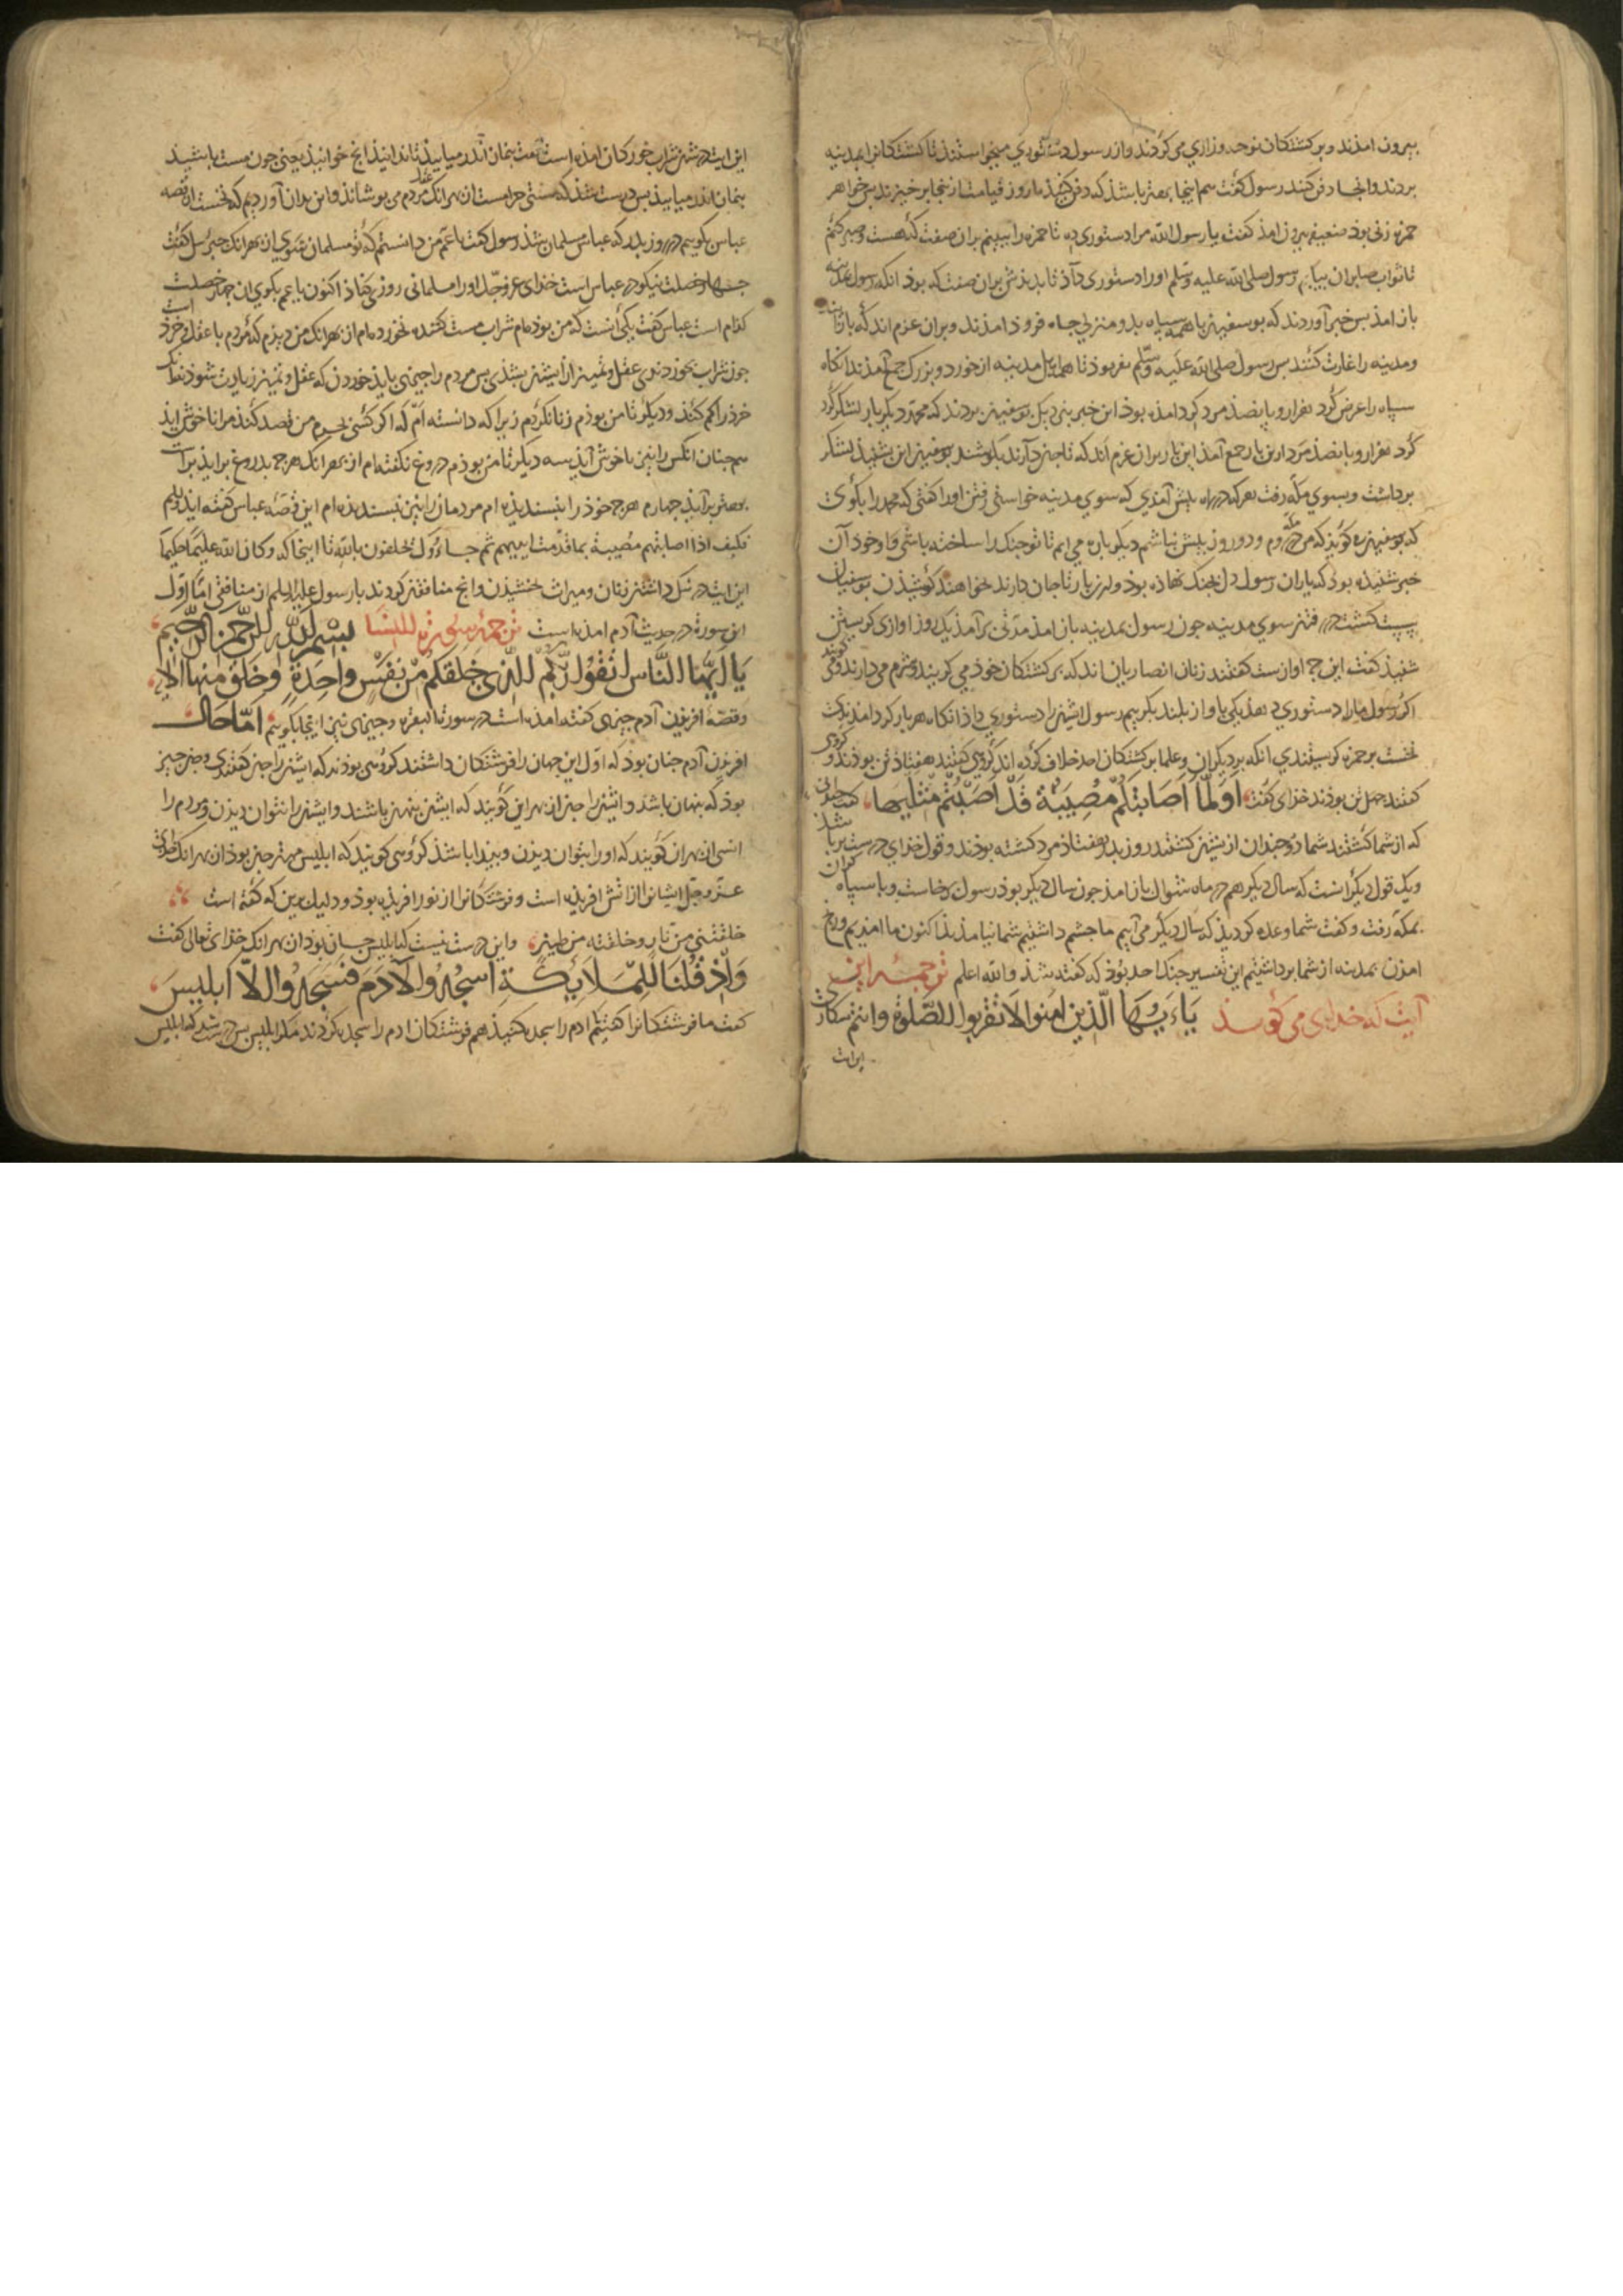 بیرون امذند و بر کشتکان نوحه و زاری می کردند و از رسول دستوری میخواستند تا کشتکانرا بمدینه
بردند و انجا دفن کنند رسول کفت هم اینجا بهتر باشذ که دفن کنیذ تا روز قیامت از ینجا بر خیزند بس خواهر
حمزه زنی بوذ ضعیفه بیرون امذ کفت یا رسول الله مرا دستوری ده تا حمزه را ببینم بران صفت که هست و صبر کنم
تا ثواب صابران بیابم رسول صلی الله علیه و سلم اورا دستوری داذ تا بدیذش بران صفت که بوذ انکه رسول بمدینه
باز امذ بس خبر آوردند که بوسفین با همه سپاه بدو منزلی جاه فروذ امذند و بران عزم اند که باز
و مدینه را غارت کنند بس رسول صلی الله علیه و سلم بفرموذ تا همه اهل مدینه از خورد و بزرک جمع آمذند انکاه
سپاه را عرض کرد هزار و پانصذ مرد کرد امذه بوذ این خبر بنزدیک بوسفین بردند که محمد دیکر بار لشکر کرد
کرد هزار و پانصذ مرد این بار جمع آمذ این بار بران عزم اند که تا جان دارند بکوشند بوسفین این بشنیذ لشکر
برداشت و بسوی مکه رفت هر که در راه پیش آمدی که سوی مدینه خواستی رفتن اورا کفتی که محمد را بکوی
که بوسفین کویذ که من مکه روم و دو روز بیش نباشم دیکر باره می ایم تا تو جنک را ساخته باشی و خوذ آن
خبر شنیذه بوذ که یاران رسول دل بجنک نهاذه بوذ و این بار تا جان دارند بخواهند کوشیذن بوسفیان
بپیت کشت در رفتن سوی مدینه جون رسول بمدینه باز امذ مدتی برآمذ یک روز اوازی کریستن
شنیذ کفت این چه اوازست کفتند زنان انصاریان اند که بر کشتکان خوذ می کریند و شرم می دارند و می کویند
اکر رسول مارا دستوری دهذ یکی باواز بلند بکرییم رسول ایشان را دستوری داذ انکاه هر بار کرد امدندی
نخست بر حمزه کریستندی انکه بر دیکران و علما بر کشتکان احد خلاف کرده اند کروهی کفتند هفتاذ تن بوذند و کروهی
کفتند جهل تن بوذند خذای کفت اولما اصابتکم مصیبة قد اصبتم مثلیها کفت
که از شما کشتند شما دو جندان از یشان کشتند روز بدر هفتاذ مرد کشته بوذند و قول خذای درست تر باشذ
و یک قول دیکر انست که سال دیکر هم در ماه شوال باز امذ جون سال دیکر بوذ رسول برخاست و با سپاه کران
بمکه رفت و کفت شما وعده کردیذ که سال دیکر می آییم ما جشم داشتیم شما نیامذیذ اکنون ما امذیم و رنج
امذن بمدینه از شما برداشتیم این تفسیر جنک احد بوذ که کفته شذ و الله اعلم ترجمه این
آیت که خذای می کویذ یاءیها الذین امنوا لا تقربوا الصلوة وانتم سکاری
این ایت در شان شراب خورکان امذه است کفت بنماز اندر میاییذ تا ندانیذ انچ خوانیذ یعنی جون مست باشیذ
بنماز اندر میاییذ بس درست شذ که مستی حرامست از بهر انک عقل مردم می بوشاند و این بدان آوردیم که نخست از قصه
عباس بکوییم در روز بدر که عباس مسلمان شذ رسول کفت یا عم من دانستم که تو مسلمان شوی از بهر انک جبرئیل کفت
جهار خصلت نیکو در عباس است خذای عز و جل اورا مسلمانی روزی کناذ اکنون یا عم بکوی ان جهار خصلت
کذام است عباس کفت یکی انست که من بوذه ام شراب مست کننده نخورده ام از بهر انک من دیذم که مردم با عقل و خرد است
جون شراب بخوردندی عقل و تمییز از ایشان بشذی بس مردم را جیزی بایذ خوردن که عقل و تمییز زیادت شوذ نه انک
خرد را کم کنذ و دیکر تا من بوذم زنا نکردم زیرا که دانسته ام که اکر کسی بحرم من قصد کنذ مرا ناخوش ایذ
هم جنان انکس را نیز ناخوش آیذ سه دیکر تا من بوذم دروغ نکفته ام از بهر انک هرچه بدروغ برایذ براست
بهتر برآیذ جهارم هرچه خوذ را نبسندیذه ام مردمان را نیز نبسندیذه ام این قصه عباس کفته ایذ
فکیف اذا اصابتهم مصیبة بما قدمت ایدیهم ثم جاءوک یحلفون بالله تا اینجا که و کان الله علیما حکیما
این ایت در نیکو داشتن زنان و میراث بخشیذن و انچ منافقان کردند با رسول علیه السلم از منافقی اما اول
این سورة در حدیث آدم امذه است ترجمه سورة النسا بسم الله الرحمن الرحیم
یا ایها الناس اتقوا ربکم الذی خلقکم من نفس واحدة وخلق منها الایه
و قصه افریذن آدم جیزی کفته امذه است در سورة البقره و جیزی نیز اینجا بکوییم اما حال
افریذن آدم جنان بوذ که اول این جهان را فرشتکان داشتند کروهی بوذند که ایشان را جن کفتندی و جن جیز
بوذ که پنهان باشذ و ایشان را جن از بهر این کویند که ایشان پنهان باشند و ایشان را نتوان دیذن و مردم را
انسی از بهر ان کویند که اورا بتوان دیذن و پیذا باشذ کروهی کویند که ابلیس مهتر جن بوذ از بهر انک خذای
عز و جل ایشانرا از اتش افریذه است و فرشتکانرا از نور افریذه بوذ و دلیل برین که کفته است
خلقتنی من نار وخلقته من طین و این درست نیست که ابلیس جان بوذ از بهر انک خذای تعالی کفت
واذ قلنا للملائکة اسجدوا لآدم فسجدوا الا ابلیس
کفت ما فرشتکانرا کفتیم ادم را سجده کنیذ هم فرشتکان ادم را سجده کردند مکر ابلیس بس درست شذ که ابلیس